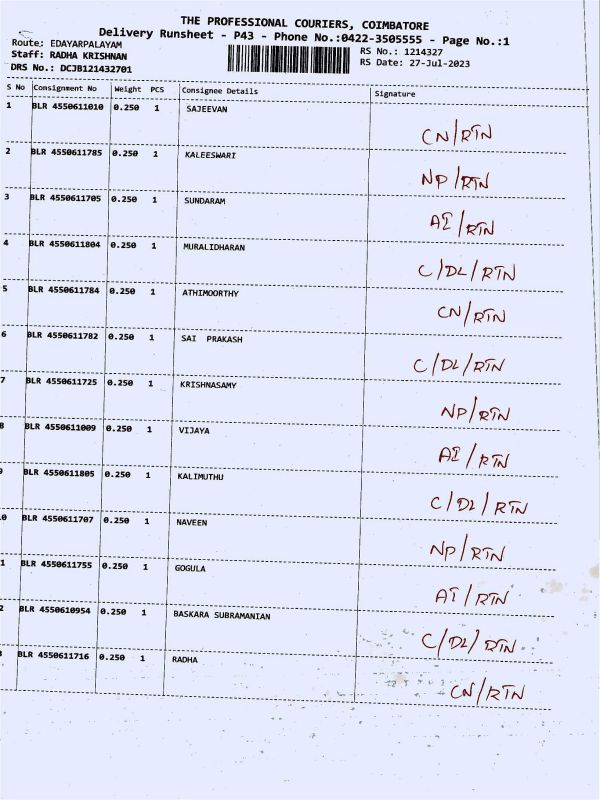 THE PROFESSIONAL COURIERS, COIMBATORE
Delivery Runsheet - P43 - Phone No.:0422-3505555 - Page No.:1
Route: EDAYARPALAYAM
RS No.: 1214327
Staff: RADHA KRISHNAN
RS Date: 27-Jul-2023
DRS No.: DCJB121432701
S No Consignment No Weight PCS Consignee Details Signature
1 BLR 4550611010 0.250 1 SAJEEVAN CN/RTN
2 BLR 4550611785 0.250 1 KALEESWARI NP/RTN
3 BLR 4550611705 0.250 1 SUNDARAM AI/RTN
4 BLR 4550611804 0.250 1 MURALIDHARAN C/DL/RTN
5 BLR 4550611784 0.250 1 ATHIMOORTHY CN/RTN
6 BLR 4550611782 0.250 1 SAI PRAKASH C/DL/RTN
7 BLR 4550611725 0.250 1 KRISHNASAMY NP/RTN
8 BLR 4550611009 0.250 1 VIJAYA AI/RTN
9 BLR 4550611805 0.250 1 KALIMUTHU C/DL/RTN
0 BLR 4550611707 0.250 1 NAVEEN NP/RTN
1 BLR 4550611755 0.250 1 GOGULA AI/RTN
2 BLR 4550610954 0.250 1 BASKARA SUBRAMANIAN C/DL/RTN
3 BLR 4550611716 0.250 1 RADHA CN/RTN